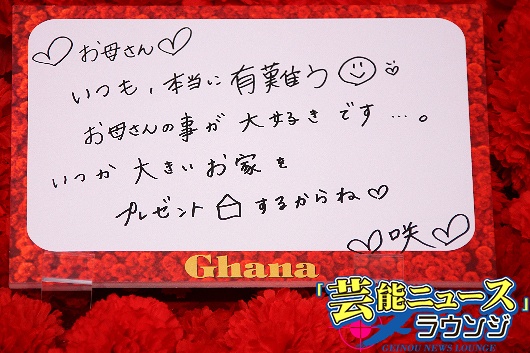 ♡お母さん♡
いつも、本当に有難う☺
お母さんの事が大好きです…。
いつか大きいお家を
プレゼント⌂するからね♡
♡咲♡
Ghana
「芸能ニュース」
ラウンジ
GEINOU NEWS LOUNGE